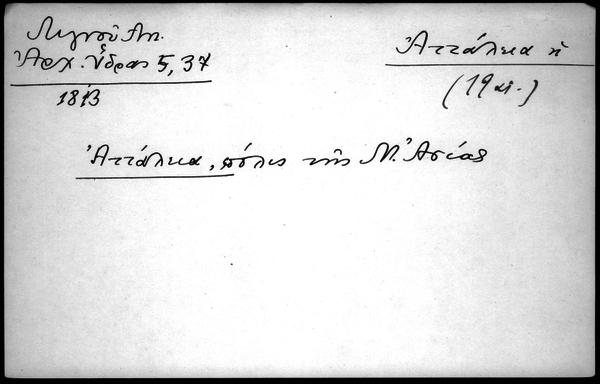 Λιγνοῦ Ἀν.
Ἀρχ. Ὕδρας 5, 37
1813
Ἀττάλεια ἡ
(19 αἰ.)
Ἀττάλεια, πόλις τῆς Μ. Ἀσίας